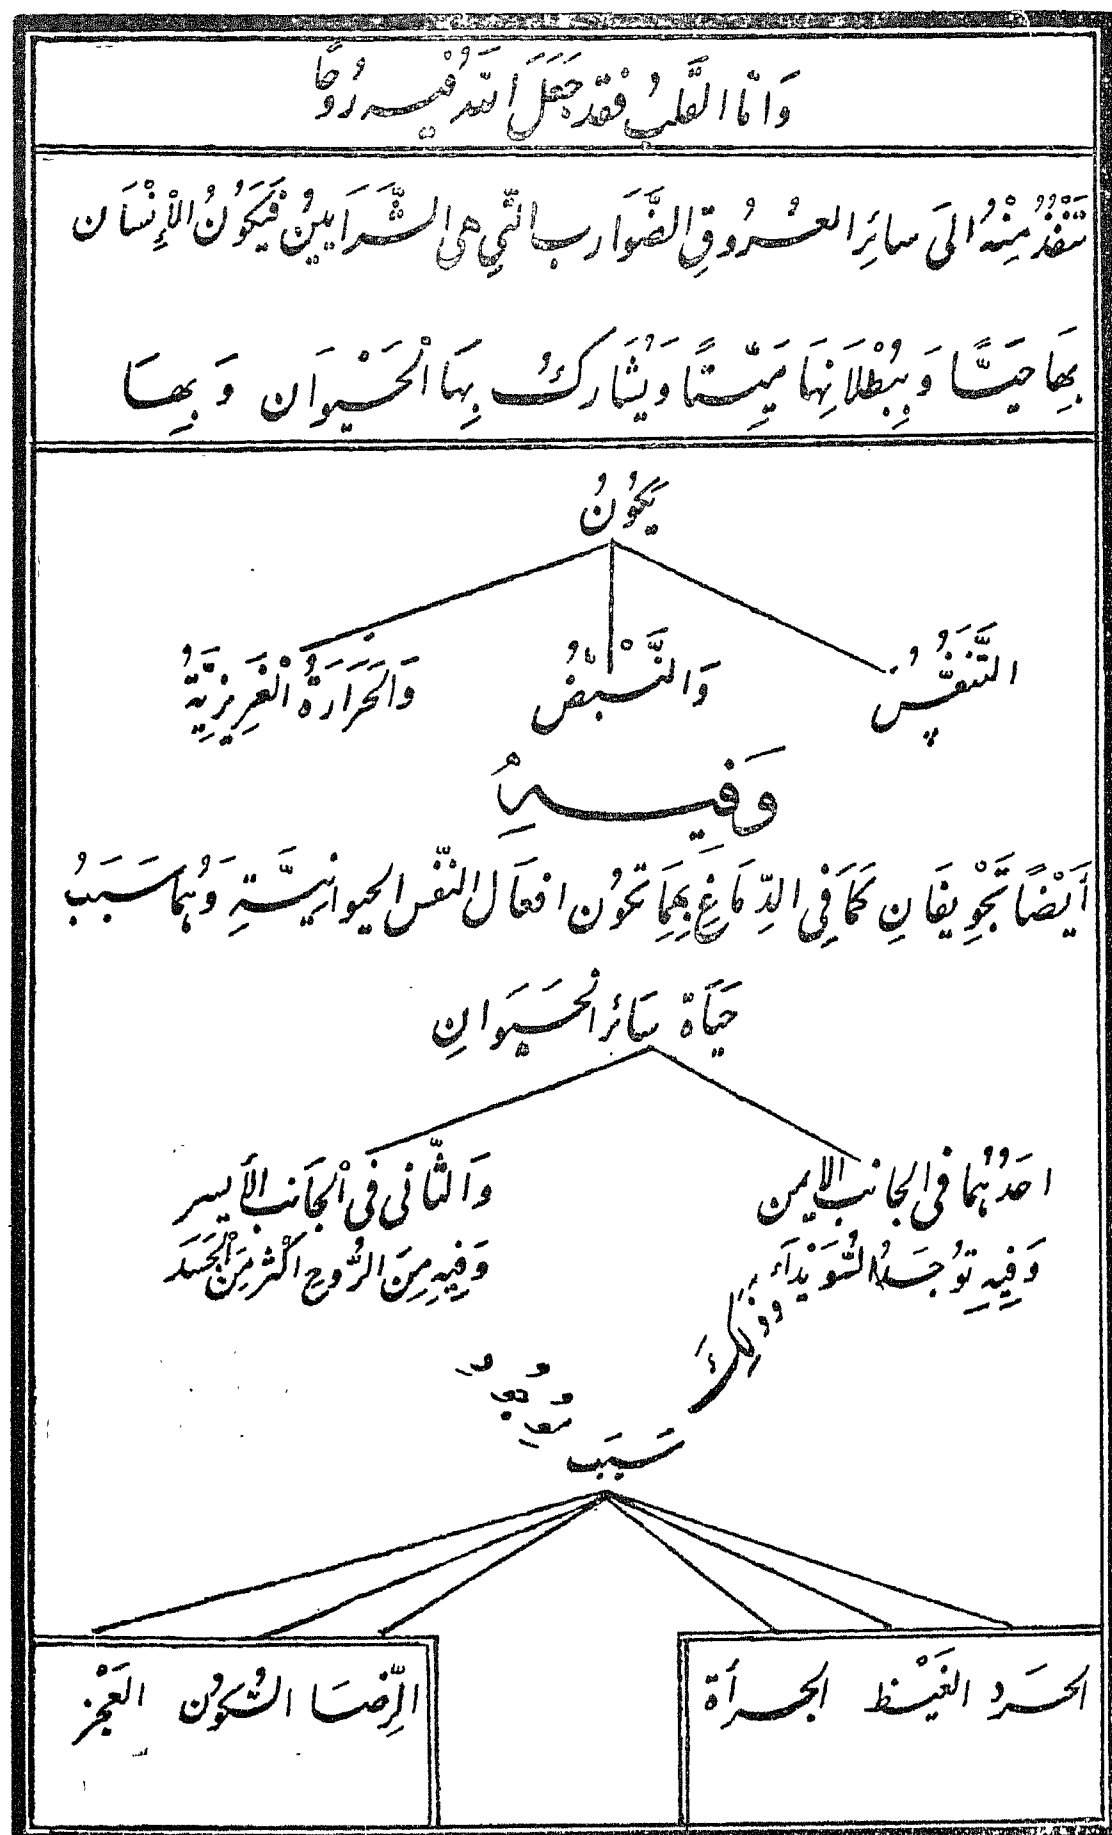 وَامّا القَلبُ فَقد جَعَلَ اللهُ فيه رُوحًا
تَنْفُذُ مِنْهُ الىَ سائِرِ العُرُوقِ الضَّوَارب التّي هى الشَّرَايينُ فَيَكُونُ الْإِنْسَان
بِهَا حَيًّا وَبِبُطْلَانِهَا مَيِّتًا وَيُشَارِكُ بِهَا الْحَيْوَان وَبِهَا
يَكُونُ
التَّنَفُّسُ وَالنَّبْضُ وَالحَرَارَةُ الْغَرِيزِيَّةُ
وَفِيهِ
أَيْضًا تَجْوِيفَانِ كَمَا فِي الدِّمَاغِ بِهِمَا تَكُون افعَال النّفس الحيوانيَّةِ وَهُما سَبَبُ
حَيَاة سَائر الحَيَوانِ
احَدُهُما فى الجانب الايمن وَالثّانى فى الْجَانب الأَيسر
وَفِيهِ تُوجَدُ السُّوَيْدَاء وَفِيهِ مِنَ الرُّوحِ اكْثر مِنَ الْجَسَد
وذلِكَ
سَبَب
الحَرَد الغَيْظ الجرأة الرِّضَا السُّكُونُ العَجْز